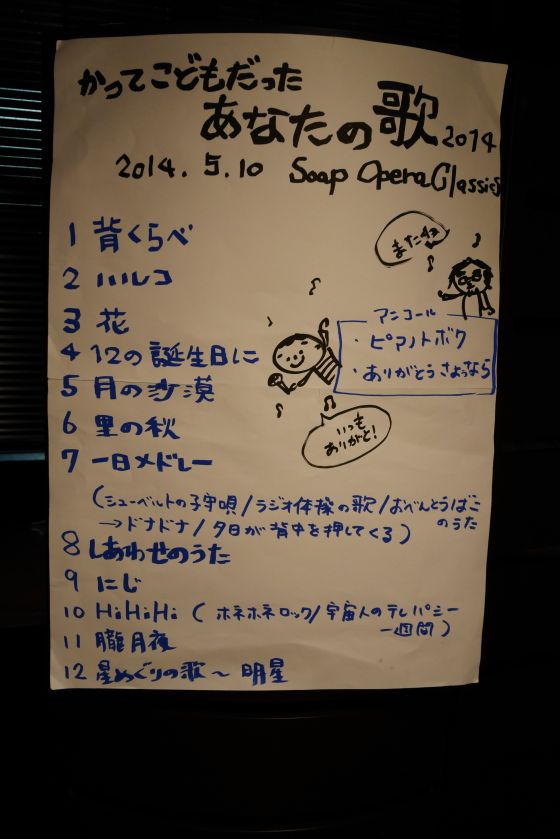 かつてこどもだった
あなたの歌 2014
2014.5.10 Soap Opera Classics
1 背くらべ
2 ハルコ
3 花
4 12の誕生日に
5 月の沙漠
6 里の秋
7 一日メドレー
(シューベルトの子守唄/ラジオ体操の歌/おべんとうばこのうた
→ドナドナ/夕日が背中を押してくる)
8 しあわせのうた
9 にじ
10 HiHiHi (ホネホネロック/宇宙人のテレパシー
一週間)
11 朧月夜
12 星めぐりの歌～明星
またネ
アンコール
・ピアノトボク
・ありがとうさよなら
いつも
ありがと!